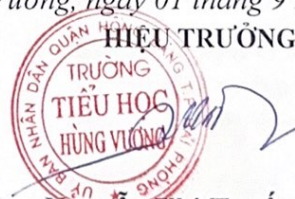 ương, ngày 01 tháng 9
HIỆU TRƯỞNG
UỶ BAN NHÂN DÂN QUẬN HỒNG BÀNG T. HẢI PHÒNG
TRƯỜNG
TIỂU HỌC
HÙNG VƯƠNG